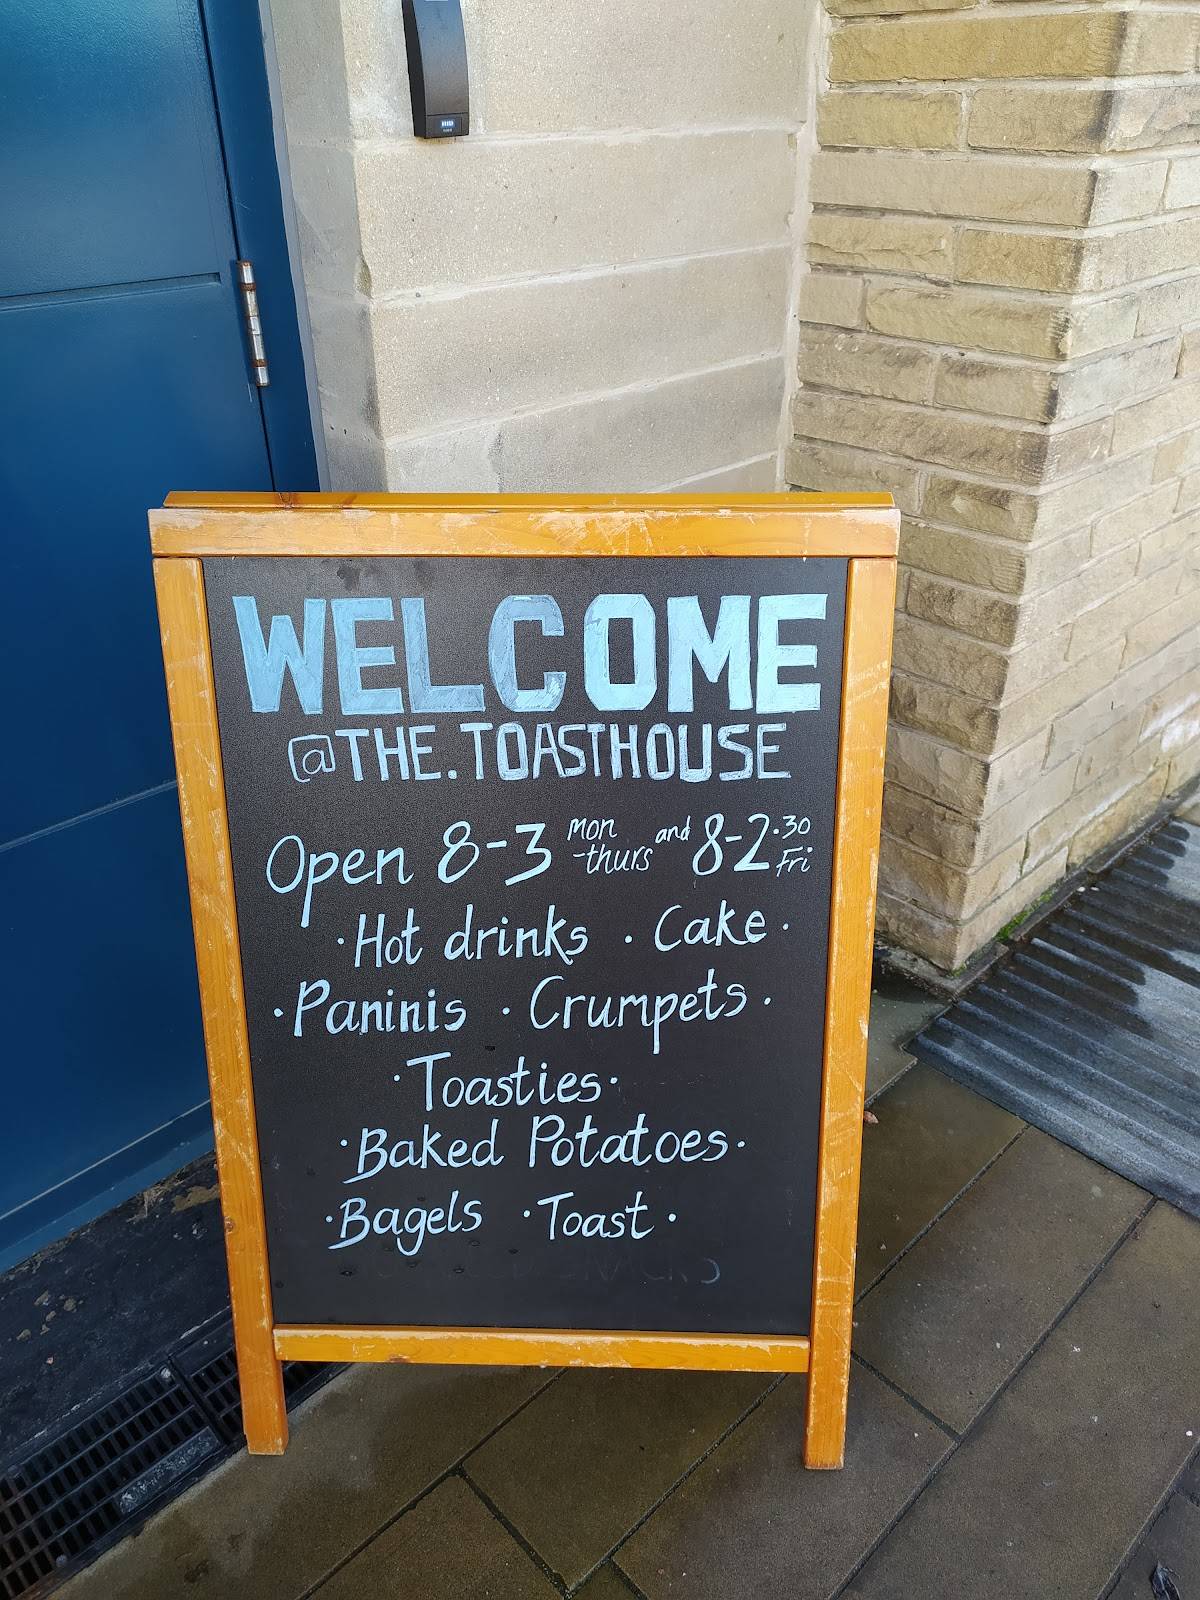 WELCOME
@THE.TOASTHOUSE
Open 8-3 mon -thurs and 8-2.30 Fri
· Hot drinks · Cake ·
· Paninis · Crumpets ·
· Toasties ·
· Baked Potatoes ·
· Bagels · Toast ·